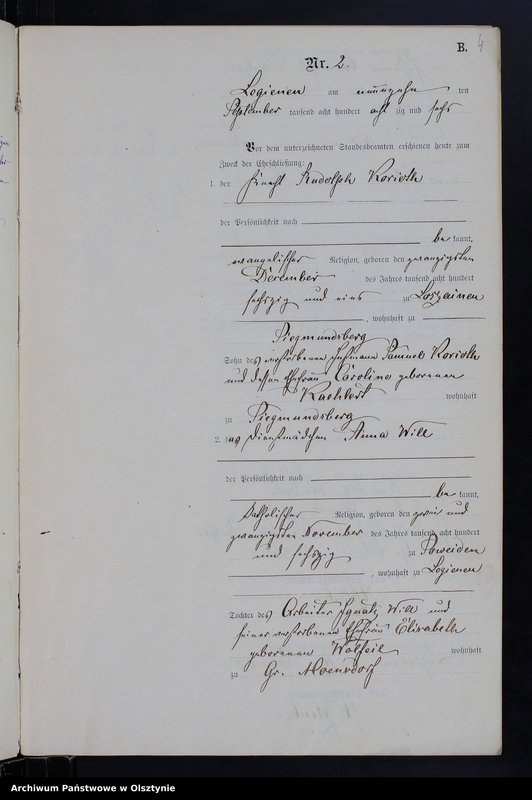 B. 4
Nr. 2.
Logienen am neunzehn ten
September tausend acht hundert acht zig und sechs
Vor dem unterzeichneten Standesbeamten erschienen heute zum
Zweck der Eheschließung:
1. der Knecht Rudolph Korioth
der Persönlichkeit nach
be kannt,
evangelischer Religion, geboren den zwanzigsten
December des Jahres tausend acht hundert
sechszig und eins zu Loszainen
, wohnhaft zu
Siegmundsberg
Sohn des verstorbenen Samuel Korioth
und dessen Ehefrau Caroline geborenen
wohnhaft
zu Siegmundsberg
2. das Dienstmädchen Anna Will
der Persönlichkeit nach
be kannt,
katholischer Religion, geboren den zwei und
zwanzigsten November des Jahres tausend acht hundert
und sechszig zu Poweiden
, wohnhaft zu Logienen
Tochter des Arbeiter Ignatz Will und
seiner verstorbenen Ehefrau Elisabeth
geborenen Wolfeil wohnhaft
zu Gr. Moensdorf
Archiwum Państwowe w Olsztynie